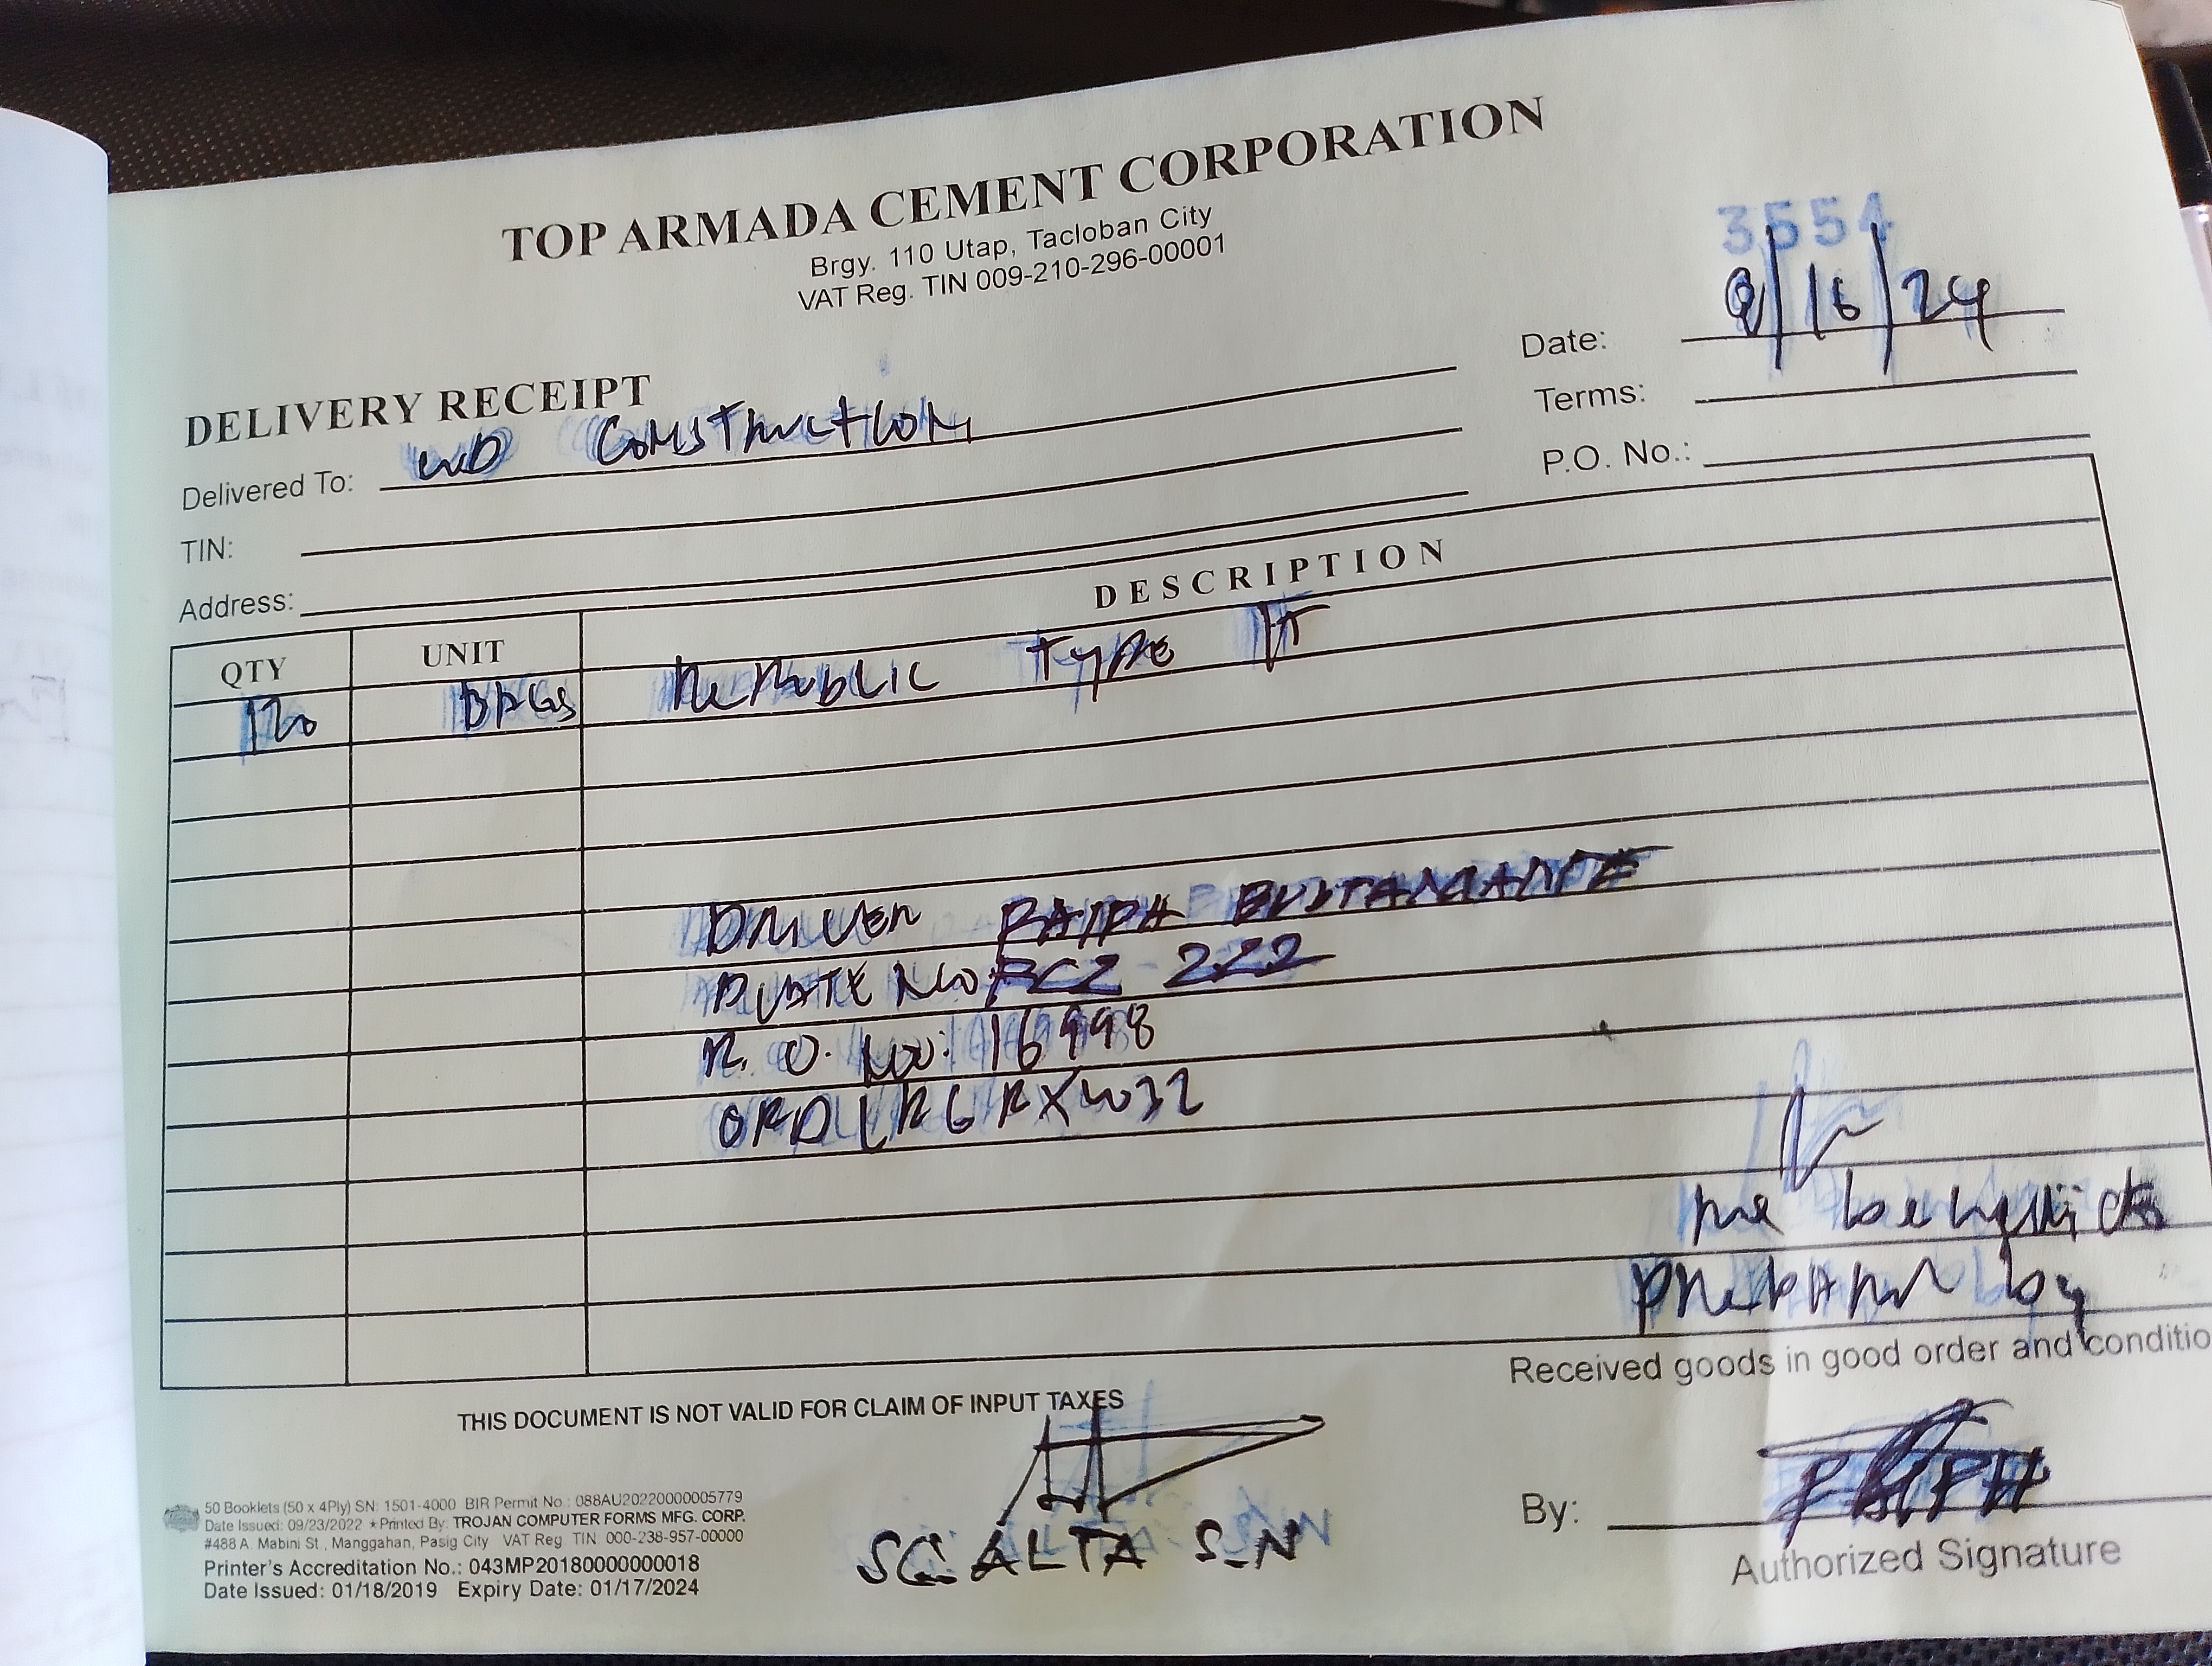 TOP ARMADA CEMENT CORPORATION
Brgy. 110 Utap, Tacloban City
VAT Reg. TIN 009-210-296-00001
3554
DELIVERY RECEIPT
Date: 9/16/24
Delivered To: WD CONSTRUCTION
Terms:
TIN:
P.O. No.:
Address:
QTY UNIT DESCRIPTION
120 BAGS REPUBLIC TYPE 1T
DRIVER RALPH BUSTAMANTE
PLATE NO:
R.O. NO: 16998
prepared by
Received goods in good order and conditio
THIS DOCUMENT IS NOT VALID FOR CLAIM OF INPUT TAXES
50 Booklets (50 x 4Ply) SN: 1501-4000 BIR Permit No.: 088AU20220000005779
Date Issued: 09/23/2022 ★Printed By: TROJAN COMPUTER FORMS MFG. CORP.
#488 A. Mabini St., Manggahan, Pasig City VAT Reg. TIN 000-238-957-00000
Printer's Accreditation No.: 043MP20180000000018
Date Issued: 01/18/2019 Expiry Date: 01/17/2024
SG. ALTA S-N
By: RALPH
Authorized Signature